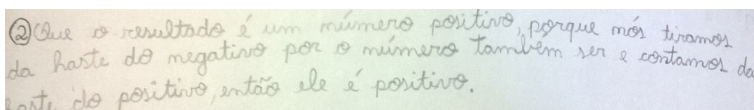 ② Que o resultado é um número positivo, porque nós tiramos
da haste do negativo por o número também ser e contamos da
haste do positivo, então ele é positivo.